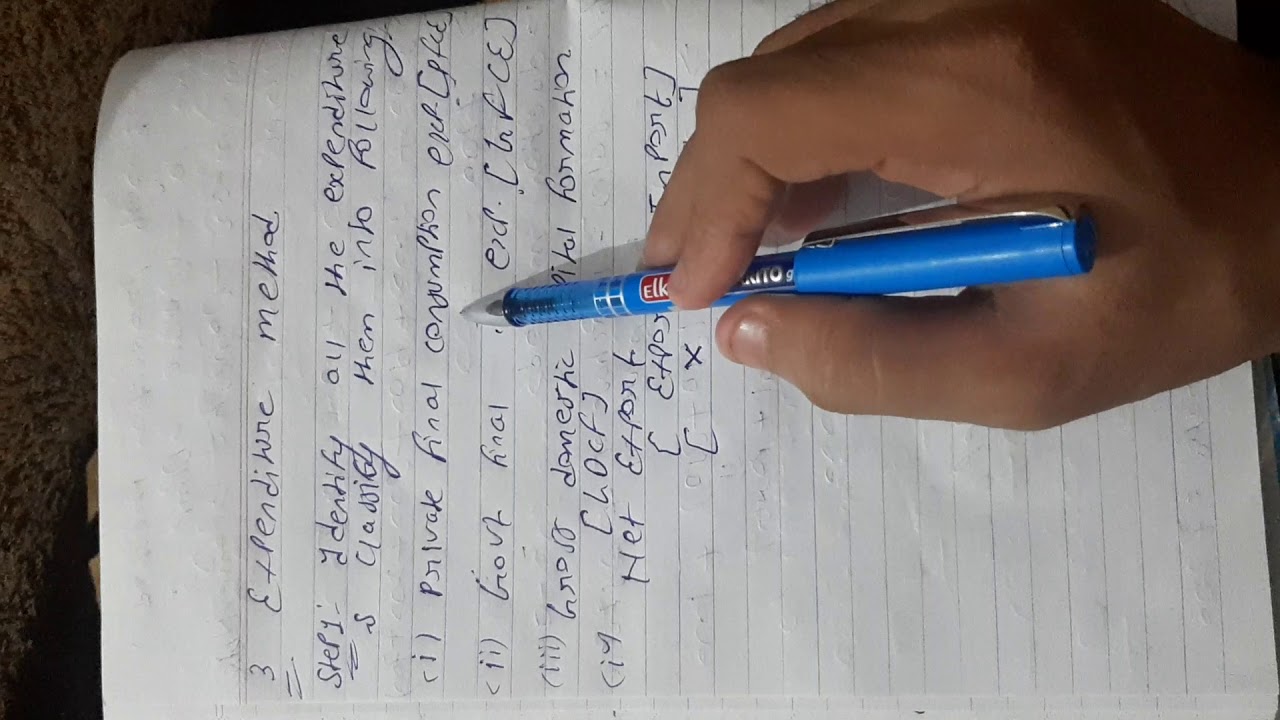 3 Expenditure method
Step1:- Identify all the expenditure
& Classify them into following
(i) Private final consumption exp. [pfce
(ii) Govt final exp. [GFCE]
(iii) Gross domestic formation
[GDCF]
(iv Net Export
[ Import]
[ X ]
Elk